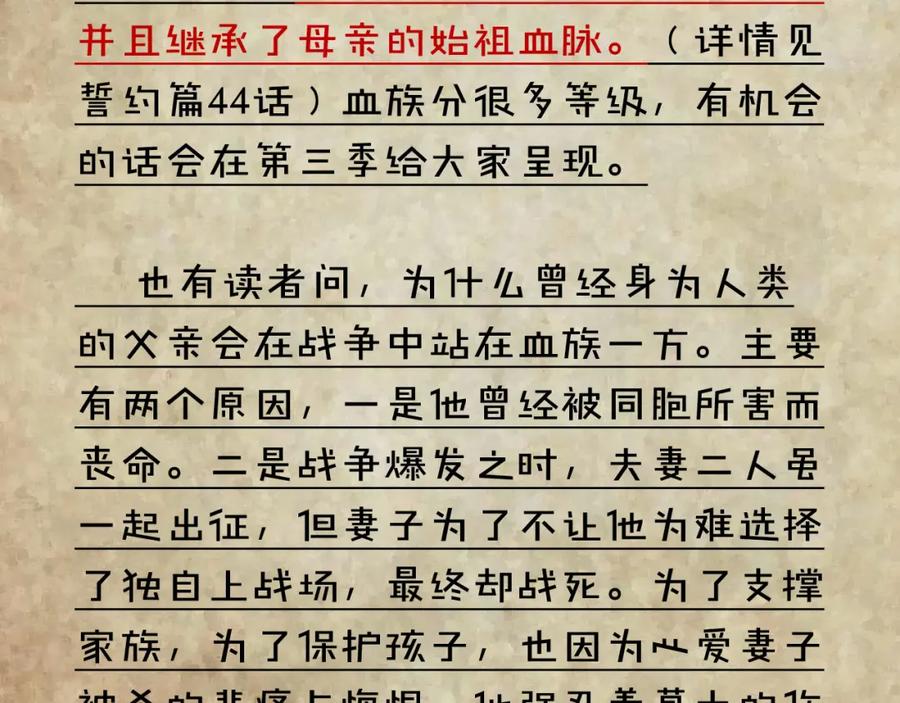 并且继承了母亲的始祖血脉。（详情见
誓约篇44话）血族分很多等级，有机会
的话会在第三季给大家呈现。
也有读者问，为什么曾经身为人类
的父亲会在战争中站在血族一方。主要
有两个原因，一是他曾经被同胞所害而
丧命。二是战争爆发之时，夫妻二人虽
一起出征，但妻子为了不让他为难选择
了独自上战场，最终却战死。为了支撑
家族，为了保护孩子，也因为爱妻子